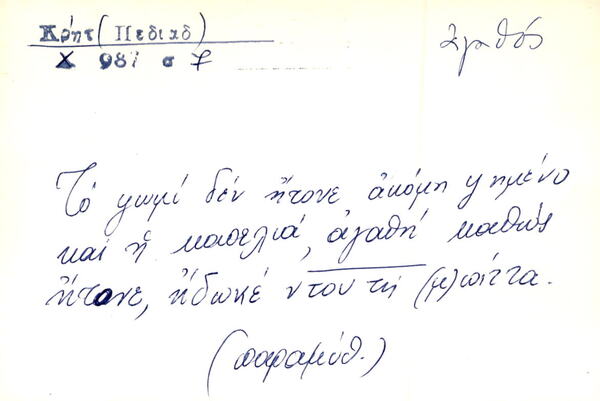 Κρητ (Πεδιαδ)
Χ 987 σ 7
ἀγαθός
Τό ψωμί δέν ἤτονε ἀκόμη ψημένο
καί ἡ κοπελιά, ἀγαθή καθώς
ἤτονε, ἤδωκέ ντου τή (μ)πίττα.
(παραμύθ.)